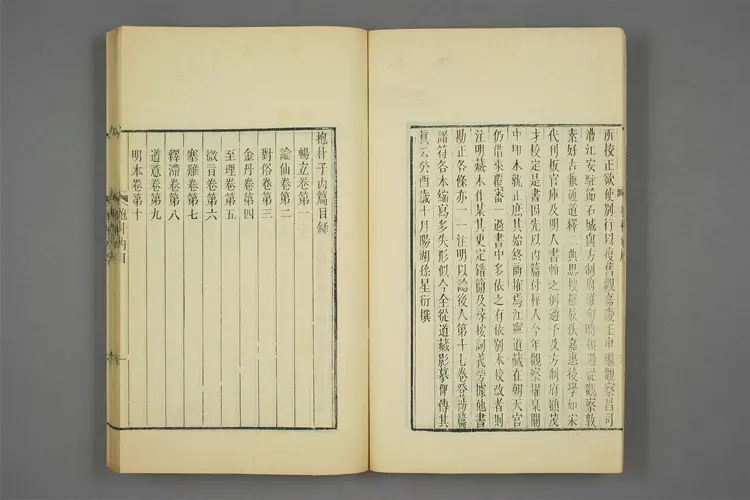 所校正欲使別行以復舊觀嘉慶壬申繼觀察昌司
漕江安駐節石城與方制府維甸時相過從觀察敦
素好古兼通道釋二典思校羅放佚嘉惠後學如宋
代刊板官庫及明人書帕之例適予及方制府顧茂
才校定是書因先以內篇付梓人今年觀察擢臬關
中本就正庶其始終商搉焉江寧道藏在朝天宮
仍借來覆番一過書中多依之有依別本校改者則
注明藏本作某其更定錯簡及尋按詞義旁據他書
勘正各條亦一一注明以諗後人第十七卷登涉篇
諸符各本縮寫多失形似今全從道藏影摹傳其
眞云癸酉歲十月陽湖孫星衍撰
抱朴子內篇目錄
暢玄卷第一
論仙卷第二
對俗卷第三
金丹卷第四
至理卷第五
微旨卷第六
塞難卷第七
釋滯卷第八
道意卷第九
明本卷第十
抱朴內目